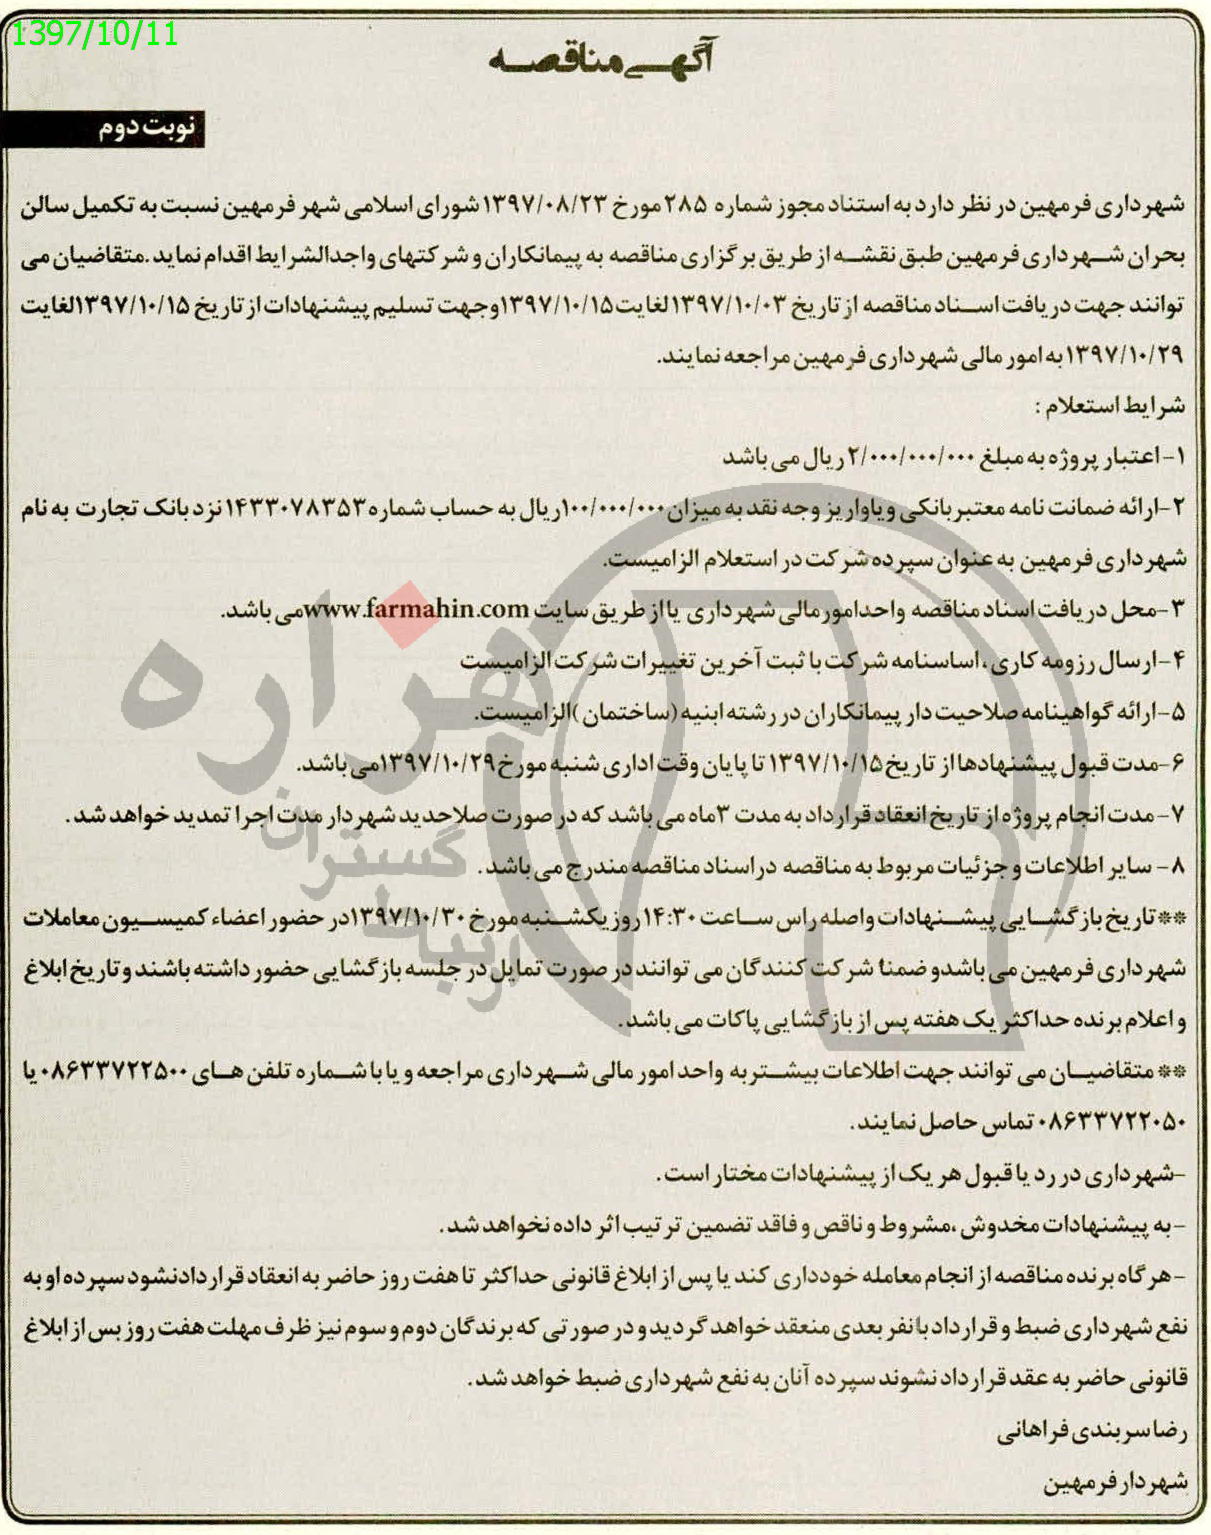 1397/10/11
آگهی مناقصه
نوبت دوم
شهرداری فرمهین در نظر دارد به استناد مجوز شماره ۲۸۵ مورخ ۱۳۹۷/۰۸/۲۳ شورای اسلامی شهر فرمهین نسبت به تکمیل سالن
بحران شهرداری فرمهین طبق نقشه از طریق برگزاری مناقصه به پیمانکاران و شرکتهای واجدالشرایط اقدام نماید.متقاضیان می
توانند جهت دریافت اسناد مناقصه از تاریخ ۱۳۹۷/۱۰/۰۳ لغایت ۱۳۹۷/۱۰/۱۵ وجهت تسلیم پیشنهادات از تاریخ ۱۳۹۷/۱۰/۱۵ لغایت
۱۳۹۷/۱۰/۲۹ به امور مالی شهرداری فرمهین مراجعه نمایند.
شرایط استعلام :
۱-اعتبار پروژه به مبلغ ۲/۰۰۰/۰۰۰/۰۰۰ ریال می باشد
۲-ارائه ضمانت نامه معتبر بانکی و یا واریز وجه نقد به میزان ۱۰۰/۰۰۰/۰۰۰ ریال به حساب شماره ۱۴۳۳۰۷۸۳۵۳ نزد بانک تجارت به نام
شهرداری فرمهین به عنوان سپرده شرکت در استعلام الزامیست.
۳-محل دریافت اسناد مناقصه واحدامورمالی شهرداری یا از طریق سایت www.farmahin.com می باشد.
۴-ارسال رزومه کاری ،اساسنامه شرکت با ثبت آخرین تغییرات شرکت الزامیست
۵-ارائه گواهینامه صلاحیت دار پیمانکاران در رشته ابنیه (ساختمان )الزامیست.
۶-مدت قبول پیشنهادها از تاریخ ۱۳۹۷/۱۰/۱۵ تا پایان وقت اداری شنبه مورخ ۱۳۹۷/۱۰/۲۹ می باشد.
۷- مدت انجام پروژه از تاریخ انعقاد قرارداد به مدت ۳ ماه می باشد که در صورت صلاحدید شهردار مدت اجرا تمدید خواهد شد .
۸- سایر اطلاعات و جزئیات مربوط به مناقصه در اسناد مناقصه مندرج می باشد .
**تاریخ بازگشایی پیشنهادات واصله راس ساعت ۱۴:۳۰ روز یکشنبه مورخ ۱۳۹۷/۱۰/۳۰ در حضور اعضاء کمیسیون معاملات
شهرداری فرمهین می باشدو ضمنا شرکت کنندگان می توانند در صورت تمایل در جلسه بازگشایی حضور داشته باشند و تاریخ ابلاغ
و اعلام برنده حداکثر یک هفته پس از بازگشایی پاکات می باشد .
** متقاضیان می توانند جهت اطلاعات بیشتر به واحد امور مالی شهرداری مراجعه و یا با شماره تلفن های ۰۸۶۳۳۷۲۲۵۰۰ یا
۰۸۶۳۳۷۲۲۰۵۰ تماس حاصل نمایند .
-شهرداری در رد یا قبول هر یک از پیشنهادات مختار است .
-به پیشنهادات مخدوش ،مشروط و ناقص و فاقد تضمین ترتیب اثر داده نخواهد شد .
-هرگاه برنده مناقصه از انجام معامله خودداری کند یا پس از ابلاغ قانونی حداکثر تا هفت روز حاضر به انعقاد قراردادنشود سپرده او به
نفع شهرداری ضبط و قرارداد با نفر بعدی منعقد خواهد گردید و در صورتی که برندگان دوم و سوم نیز ظرف مهلت هفت روز پس از ابلاغ
قانونی حاضر به عقد قرارداد نشوند سپرده آنان به نفع شهرداری ضبط خواهد شد .
رضا سربندی فراهانی
شهردار فرمهین
هزاره
گستران